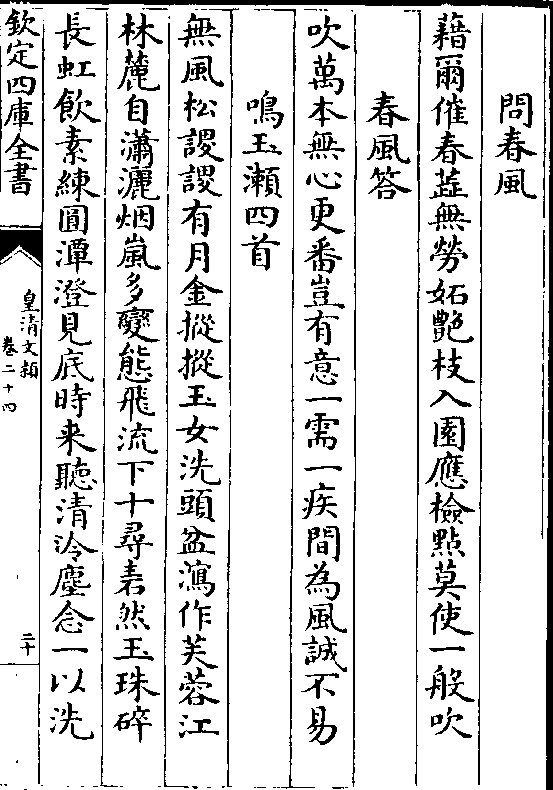 問春風
藉爾催春蕋無勞妬艷枝入園應檢點莫使一般吹
春風答
吹萬本無心更番豈有意一需一疾間為風誠不易
鳴玉瀨四首
無風松謖謖有月金摐摐玉女洗頭盆瀉作芙蓉江
林麓自瀟灑烟嵐多變態飛流下十尋砉然玉珠碎
長虹飲素練圓潭澄見底時来聽清泠塵念一以洗
欽定四庫全書
皇清文頴
卷二十四
二十